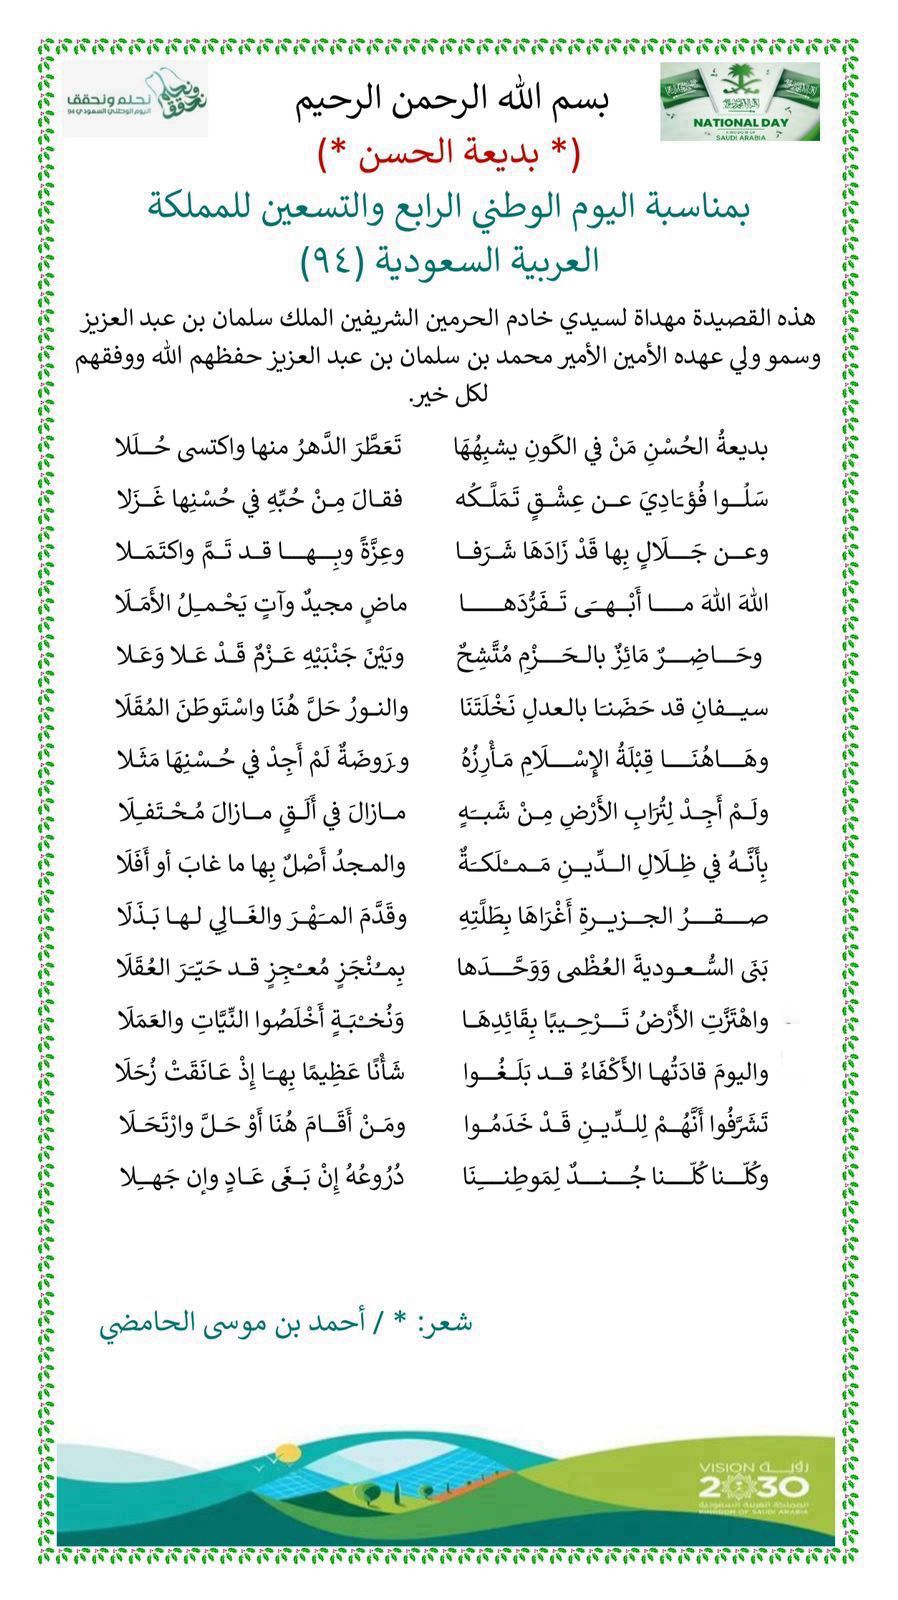 نحلم ونحقق
نحلم ونحقق
اليوم الوطني السعودي 94
NATIONAL DAY
KINGDOM OF
SAUDI ARABIA
بسم الله الرحمن الرحيم
(* بديعة الحسن *)
بمناسبة اليوم الوطني الرابع والتسعين للمملكة
العربية السعودية (٩٤)
هذه القصيدة مهداة لسيدي خادم الحرمين الشريفين الملك سلمان بن عبد العزيز
وسمو ولي عهده الأمين الأمير محمد بن سلمان بن عبد العزيز حفظهم الله ووفقهم
لكل خير.
بديعةُ الحُسْنِ مَنْ في الكَونِ يشبِهُهَا تَعَطَّرَ الدَّهرُ منها واكتسى حُــلَلا
سَلُــوا فُؤَادِيَ عــن عِشْــقٍ تَمَلَّــكُه فقــالَ مِــنْ حُبِّهِ في حُسْنِها غَــزَلا
وعــن جَـــلَالٍ بِها قَدْ زَادَهَا شَـرَفــا وعِزَّةً وبِـــهـــا قــد تَــمَّ واكتَمَــلا
اللهَ اللهَ مـــا أَبْــهــَى تَــفَرُّدَهـــــا ماضٍ مجيدٌ وآتٍ يَحْـمـلُ الأَمَـلَا
وحَـــاضِـــرٌ مَائِزٌ بالـحَــــزْمِ مُتَّشِحٌ وبَيْنَ جَنْبَيْهِ عَــزْمٌ قَــدْ عَــلا وَعَـلا
سيــفانِ قد حَضَنـَا بالعدلِ نَخْلَتَنَا والنــورُ حَلَّ هُنَا واسْتَوطَنَ المُقَلَا
وهَـــاهُنَـــا قِبْلَةُ الإِسْـــلَامِ مَـأْرِزُهُ ورَوضَةٌ لَمْ أَجِدْ في حُــسْنِهَا مَثَـلا
ولَــمْ أَجِــدْ لِتُرَابِ الأَرْضِ مِــنْ شَبــَهٍ مــازالَ في أَلَــقٍ مــازالَ مُـحْـتَـفـِلَا
بِأَنَّــهُ في ظِــلَالِ الــدِّيــنِ مَــمـْلَكـَةٌ والمـجدُ أَصْلٌ بِها ما غابَ أو أَفَلَا
صــــقــــرُ الجــزيــرةِ أَغْرَاهَا بِطَلَّتِهِ وقَدَّمَ المـَهْـرَ والغَــالِي لـهـا بَـذَلَا
بَنَى السُّــعـوديةَ العُظْمى وَوَحَّـــدَها بِمـُنْجَزٍ مُعـْجِزٍ قــد حَيّـَرَ العُقَلَا
واهْتَزَّتِ الأَرْضُ تَـــرْحِــيبًا بِقَائِدِهَــا وَنُخـْبَـةٍ أَخْلَصُوا النِّيَّاتِ والعَمَلَا
واليومَ قادَتُهـا الأَكْفَاءُ قــد بَلَـغُــوا شَأْنًا عَظِيمًا بِهـَا إِذْ عَـانَقَتْ زُحَلَا
تَشَرَّفُوا أَنَّهُــمْ لِلدِّيــنِ قَــدْ خَدَمُــوا ومَــنْ أَقَــامَ هُنَا أَوْ حَـلَّ وارْتَحَـلَا
وكُلّــنا كُلّــــنا جُـــنــدٌ لِمَوطِنــــِنَا دُرُوعُهُ إِنْ بَــغَى عَــادٍ وإن جَهــِلا
شعر: * / أحمد بن موسى الحامضي
VISION رؤيـــة
2030
المملكة العربية السعودية
KINGDOM OF SAUDI ARABIA